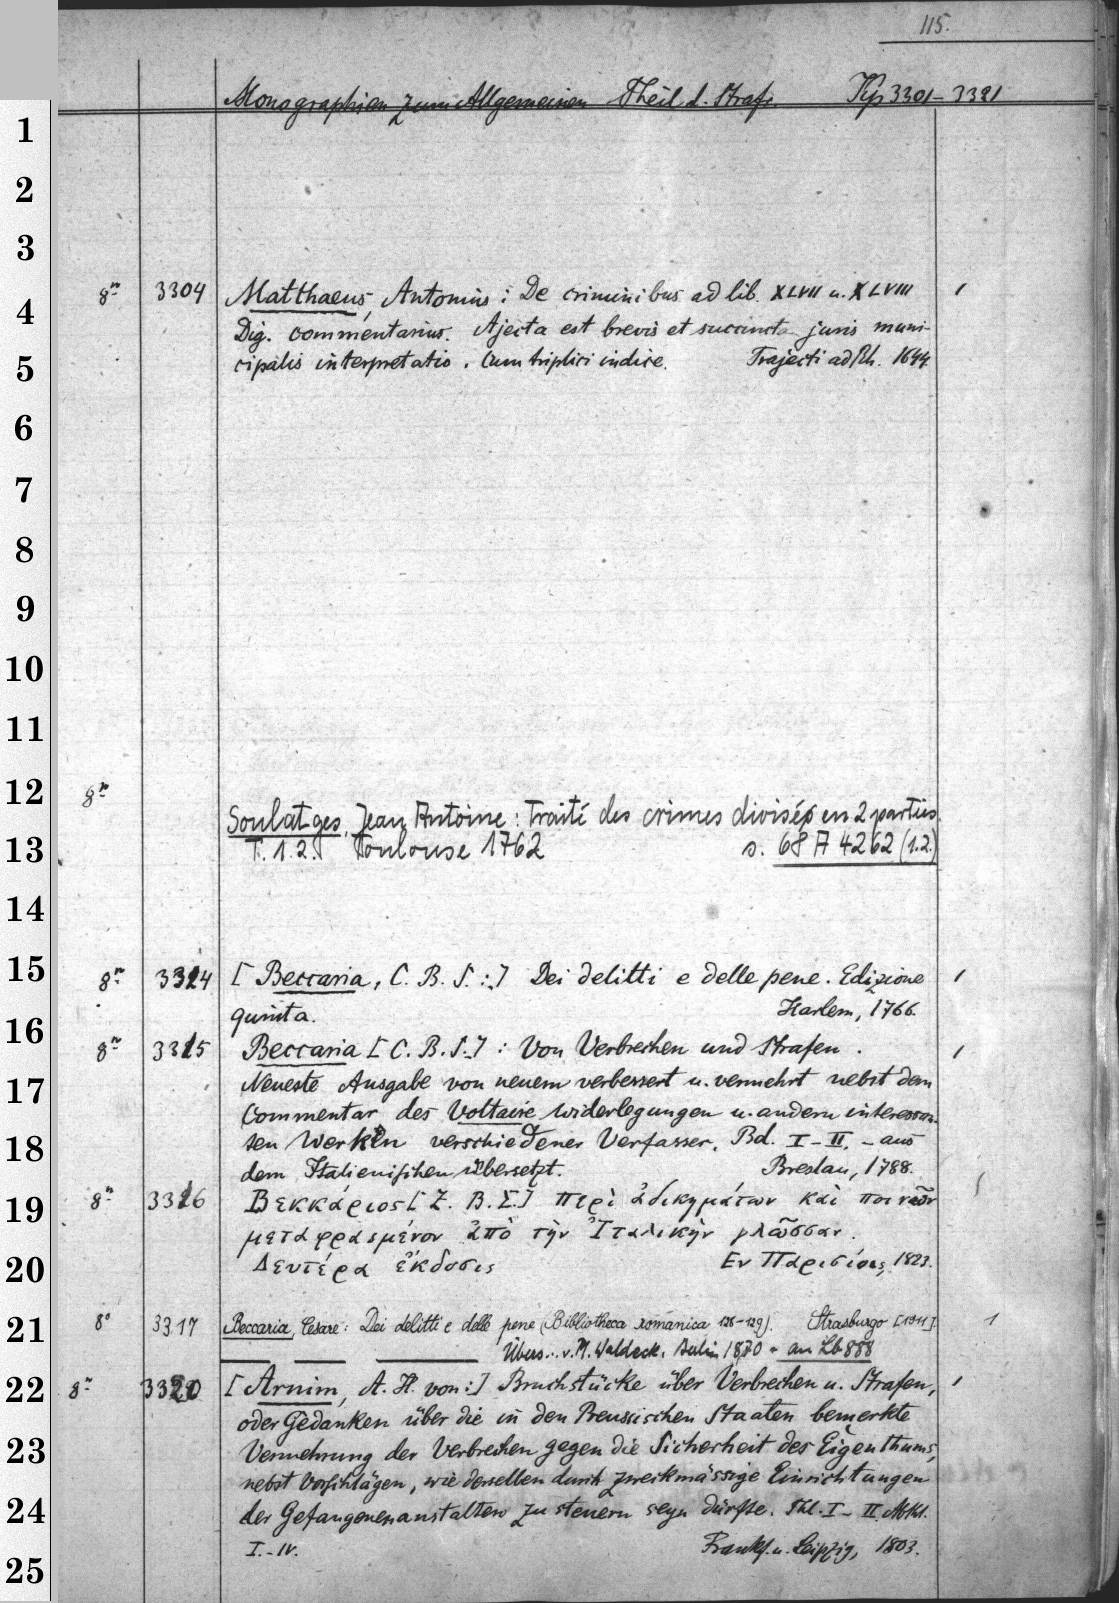 115.
Monographien zum Allgemeinen Theil d. Strafr. Kp 3301-3321
1
2
3
8º 3304 Matthaeus, Antonius: De criminibus ad lib. XLVII u. XLVIII
4
Dig. commentarius. Ajecta est brevis et succincta juris muni-
5
cipalis interpretatio. Cum triplici indice. Trajecti ad Rh. 1644.
6
7
8
9
10
11
12 8º
Soulatges, Jean Antoine: Traité des crimes divisés en 2 parties.
13
T. 1.2. Toulouse 1762 s. 68 A 4262 (1.2.)
14
15 8º 3314 [Beccaria, C. B. S.:] Dei delitti e delle pene. Edizione
quinta. Harlem, 1766.
16
8º 3315 Beccaria [C. B. S.] : Von Verbrechen und Strafen.
17
Neueste Ausgabe von neuem verbessert u. vermehrt nebst dem
Commentar des Voltaire widerlegungen u. andern interessan-
18
ten Werken verschiedener Verfasser. Bd. I-II. - aus
dem Italienischen übersetzt. Breslau, 1788.
19 8º 3316 Βεκκάριος [Ζ. Β. Σ.] περὶ ἀδικημάτων καὶ ποινῶν
μεταφρασμένον ἀπὸ τὴν Ἰταλικὴν γλῶσσαν.
20
Δευτέρα ἔκδοσις Εν Παρισίοις, 1823.
21 8º 3317 Beccaria, Cesare: Dei delitti e delle pene (Bibliotheca romanica 128-129). Strasburgo [1911].
Übers. v. M. Waldeck. Berlin 1870 = an Lb 888
22 8º 3320 [Arnim, A. H. von:] Bruchstücke über Verbrechen u. Strafen,
oder Gedanken über die in den Preussischen Staaten bemerkte
23
Vermehrung der Verbrechen gegen die Sicherheit des Eigenthums,
nebst Vorschlägen, wie derselben durch zweckmässige Einrichtungen
24
der Gefangenenanstalten zu steuern seyn dürfte. Thl. I-II. Abthl.
I.-IV. Frankf. u. Leipzig, 1803.
25